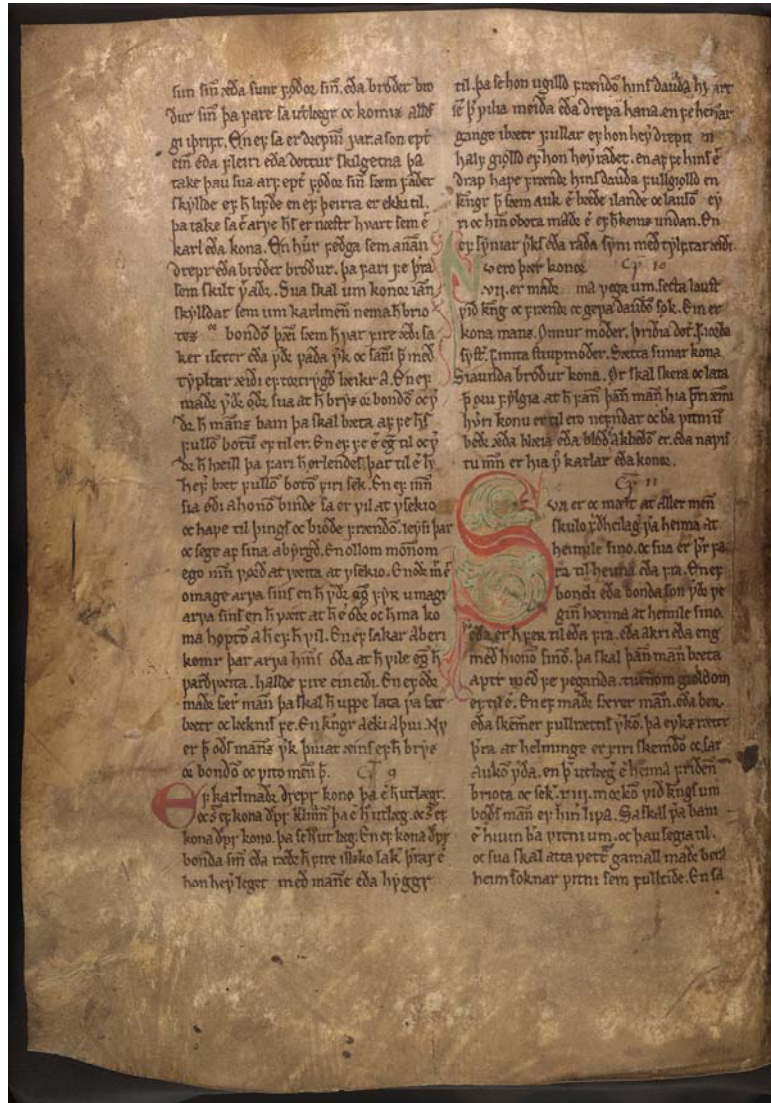 sun sin æda sunr fodor sin. eda broder bro
dur sin þa fare sa utlægr oc komiz alld
gi i frift. En ef sa er drepin var. a son ept
ein eda fleiri eda dottur skilgetna þa
take þau sua arf ept fodor sin sæm fader
skyllde ef h lifde en ef þeirra er ekki til.
þa take sa e arfe hs er næstr hvart sem e
karl eda kona. En hur fedga sem annan
drepr eda broder brodur. þa fari fe þra
sem skilt var adr. Sua skal um konor ian
skylldar sem um karlmen nema h brio
tez bondo þæi sæm h var fire ædi sa
ker i settr eda yde vada vk oc sani þ med
tylftar æidi er tortrygd læikr a. En ef
made yde odr sua at h bryz or bondo oc v
dr h mans bani þa skal bæta af fe hs
fullo botu ef til er. En ef fe e eg til oc v
dr h hæill þa fari h ørlendes þar til e h
hef bæt fullo boto firi sek. En ef mn
sia ædi a hono binde sa er vil at ysekio
oc hafe til þings oc biode frændo. leysi þar
oc sege af sina abyrgd. En ollom monom
ego mn vord at vætta at ysekio. En odr m e
omage arfa sins en h ydr gg syk umagi
arfa sins en h væit at h e odr oc h ma ko
ma hopto a h ef h vil. En ef sakar aberi
komr þar arfa hins oda at h vile eg h
vardvæita. hallde fire eineidi. En ef odr
made sær man þa skal h uppe lata va sar
bætr oc læknis fe. En kngr a eki a þui. Ny
er þ ods mans vk þuiat æins ef h bryz
or bondo oc vito men þ. Cp 9
Ef karlmade drepr kono þa e h utlægr.
oc s ef kona dpr klmn þa e h utlæg. oc s ef
kona dpr kono. þa se h ut læg. En ef kona dpr
bonda sin eda rædr h fire illsko sak þrar e
hon hef leget med mane eda hyggr
til. þa se hon ugilld frendo hins dauda hvart
se þ vilia meida eda drepa hana. en fe hennar
gange i bætr fullar ef hon hef drepit en
half giolld ef hon hef radet. en af fe hins e
drap hafe frende hins dauda fullgiolld en
kngr þ sæm auk e bæde i lande oc lauso ey
ri oc hin obota made e ef h kemz undan. En
ef syniar vks eda rada syni med tylftar æidi.
Nv ero þær konor Cp 10
.vij. er made ma vega um. secta laust
vid kng oc frende oc gefa daudo sok. Ein er
kona mans. Onnur moder. þridia dot. fiorda
syst. Fimta stiupmoder. Sætta sunar kona
Siaunda brodur kona. Or skal skera oc lata
þ oeu fylgia at h fan þan man hia fri æini
hvri konu er til ero nefndar oc ba vitni u
bedr æda blæia eda blod a kledo er. eda nafns
tu mn er hia v karlar eda konor.
Cp 11
Sva er oc mælt at aller men
skulo fridheilag va heima at
heimile sino. oc sua er þr fa
ra til heima eda fra. En ef
bondi eda bonda son ydr ve
gin hæima at hemile sino.
eda er h fer til eda fra. eda akri eda eng
med hiono sino. þa skal þan man bæta
aptr med fe veganda. tuennom gioldom
ef til e. En ef made særer man. eda ber.
eda skemer fullrættis vko. þa eyks rættr
þra at helminge er firi skemdo oc sar
auko vda. en þ utlæg e heima friden
briota oc sek .xiii. morko vid kngs um
bods man ef hin lifa. Sa skal þa bani
e hiuin ba vitni um. oc þau segia til.
oc sua skal atta vett gamall made bera
heimsoknar vitni sem fulltide. En sa